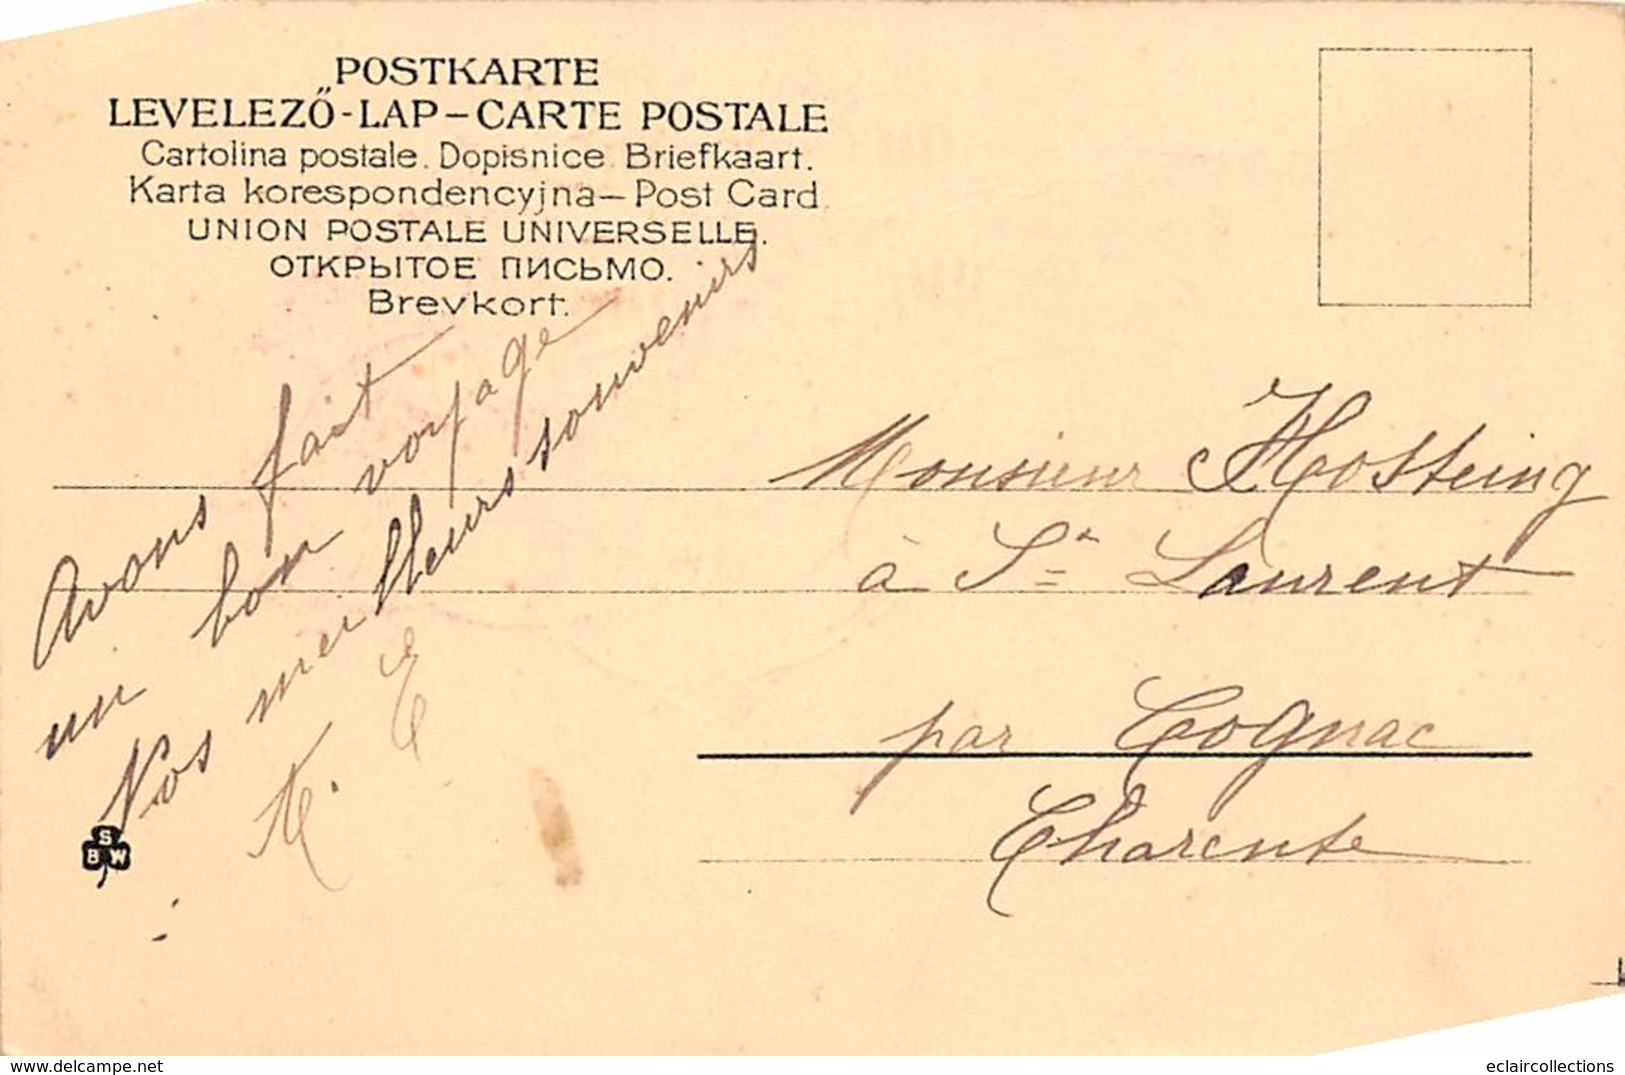 POSTKARTE
LEVELEZŐ-LAP–CARTE POSTALE
Cartolina postale. Dopisnice. Briefkaart.
Karta korespondencyjna–Post Card.
UNION POSTALE UNIVERSELLE.
ОТКРЫТОЕ ПИСЬМО.
Brevkort.
Avons fait
un bon voyage
Nos meilleurs souvenirs
Monsieur Hosteing
à St Laurent
par Cognac
Charente
S
B W
eclaircollections